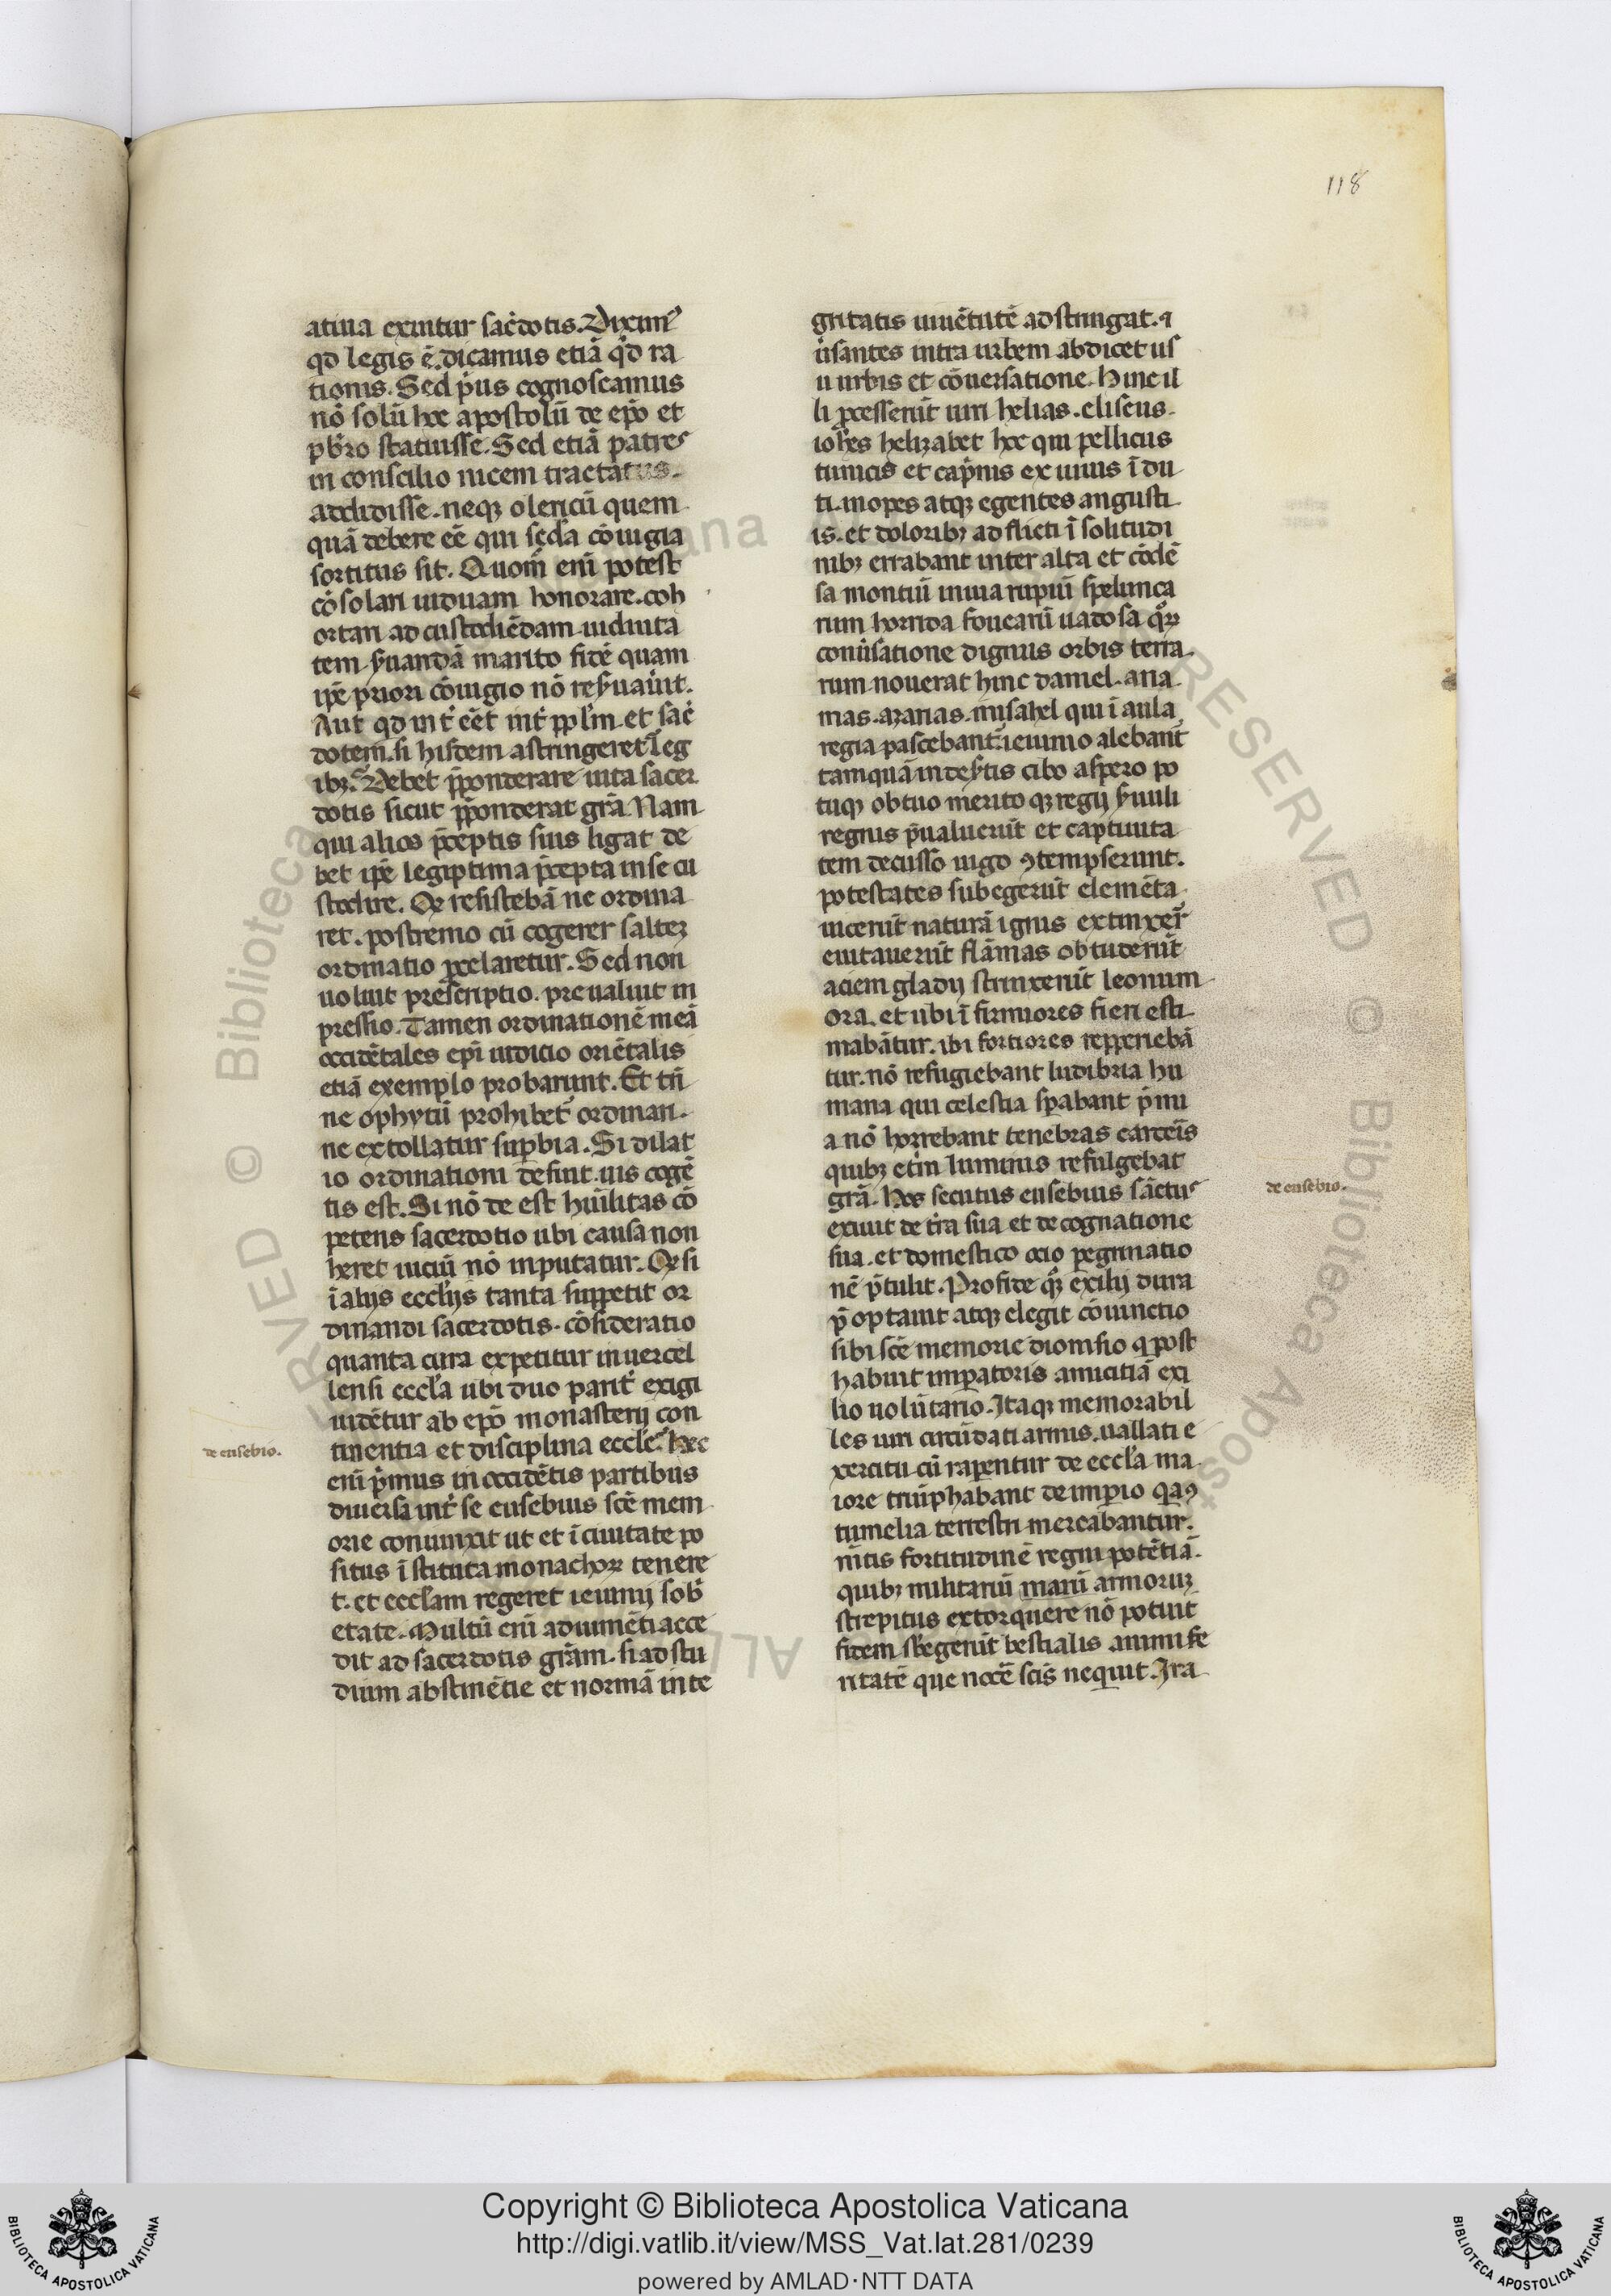 118
atiua exuitur sac̄dotis. Dixim᷒
qd legis ē. dicamus etiā qd ra
tionis. Sed p̄us cognoscamus
nō solū hoc apostolū de ep̄o et
pb̄ro statuisse. Sed etiā patres
in conscilio nicem tractatus.
addidisse. neqꝫ olericū quem
quā debere eē qui sc̄da cōiugia
sortitus sit. Quom̄ eni potest
cōsolari uiduam honorare. coh
ortari ad custodiēdam uiduita
tem. ẜuandā marito fidē quam
ip̄e priori cōiugio nō reẜuauit.
Aut qd int̄ eēt int̄ pplm̄. et sac̄
dotem. si hisdem astringeret̄ leg
ibꝫ. Debet p̄ponderare uita sacer
dotis sicut p̄ponderat grā. Nam
qui alios p̄ceptis suis ligat de
bet ip̄e legiptima p̄cepta in se cu
stodire. Qꝫ resistebā ne ordina
ret. postremo cū cogerer saltez
ordinatio ꝓcelaretur. Sed non
uoluit prescriptio. preualuit in
pressio. Tamen ordinationē meā
occidētales epī iuditio oriētalis
etiā exemplo probarunt. Et tn̄
ne ophytū prohibet᷒ ordinari.
ne extollatur suꝑbia. Si dilat
io ordinationi defuit. uis cogē
tis est. Si nō de est humilitas cō
petens sacerdotio ubi causa non
heret uiciū nō inputatur. Qꝫ si
ī alijs eccl̄ijs tanta suppetit or
dinandi sacerdotis. cōsideratio
quanta cura expetitur in uercel
lensi eccl̄a ubi duo parit̄ exigi
uidētur ab ep̄o monasterij con
tinentia et disciplina eccl̄e. Hec
de eusebio.
eni p̄mus in occidētis partibus
diuersa int̄ se eusebius sc̄e mem
orie coniunxit ut et ī ciuitate po
situs īstituta monachoꝝ tenere
t. et eccl̄am regeret ieiunij sob̄
etate. Multū eni adiumēti acce
dit ad sacerdotis grām. si ad stu
dium abstinētie et normā inte
gritatis iuuētutē adstringat. ⁊
ūsantes intra urbem abdicet us
u urbis et cōuersatione. Hinc il
li ꝓcesserūt uiri helias. eliseus.
ioh̄es helizabet hoc qui pellicus
tunicis et cap̄nis exuuus ī du
ti. inopes atqꝫ egentes angusti
is. et doloribꝫ adflicti ī solitudi
nibꝫ errabant inter alta et cōdē
sa montiū inuia rupiū spelunca
rum horrida fouearū uadosa qͦꝝ
conūsatione dignus orbis terra
rum nouerat hinc daniel. ana
nias. azarias. misahel qui ī aula
regia pascebant᷒. ieiunio alebant᷒
tamquā in deẜtis cibo aspero po
tuqꝫ obtuo merito qꝫ regij ẜuuli
regnis p̄ualuerūt et captiuita
tem decusso iugo ꝯtempserunt.
potestates subegerūt elemēta
uicerūt naturā ignis extinxer̄
euitauerūt flāmas obtuderūt
aciem gladij strinxerūt leonum
ora. et ubi ī firmiores fieri esti
mabātur. ibi fortiores repperiebā
tur. nō refugiebant ludibria hu
mana qui celestia sꝑabant p̄mi
a nō horrebant tenebras carceris
quibꝫ et̄ni luminis refulgebat
grā. Hos secutus eusebius sāctus
de eusebio.
exiuit de t̄ra sua et de cognatione
sua. et domestico ocio ꝑegrinatio
nē p̄tulit. Pro fide qͦꝫ exilij dura
p̄optauit atqꝫ elegit cōiunctio
sibi sc̄e memorie dionisio q post
habuit imꝑatoris amicitiā exi
lio uolūtario. Itaqꝫ memorabil
les uiri circūdati armis. uallati e
xercitu cū raꝑentur de eccl̄a ma
iore triūphabant de imꝑio qa ꝯ
tumelia terrestri mercabantur.
nītis fortitudinē regni potētiā.
quibꝫ militariū manū armoruꝫ
strepitus extorquere nō potuit
fidem sb̄egerūt bestialis animi fe
ritatē que nocē scīs nequit. Ira
Copyright © Biblioteca Apostolica Vaticana
http://digi.vatlib.it/view/MSS_Vat.lat.281/0239
powered by AMLAD·NTT DATA
BIBLIOTECA APOSTOLICA VATICANA
BIBLIOTECA APOSTOLICA VATICANA